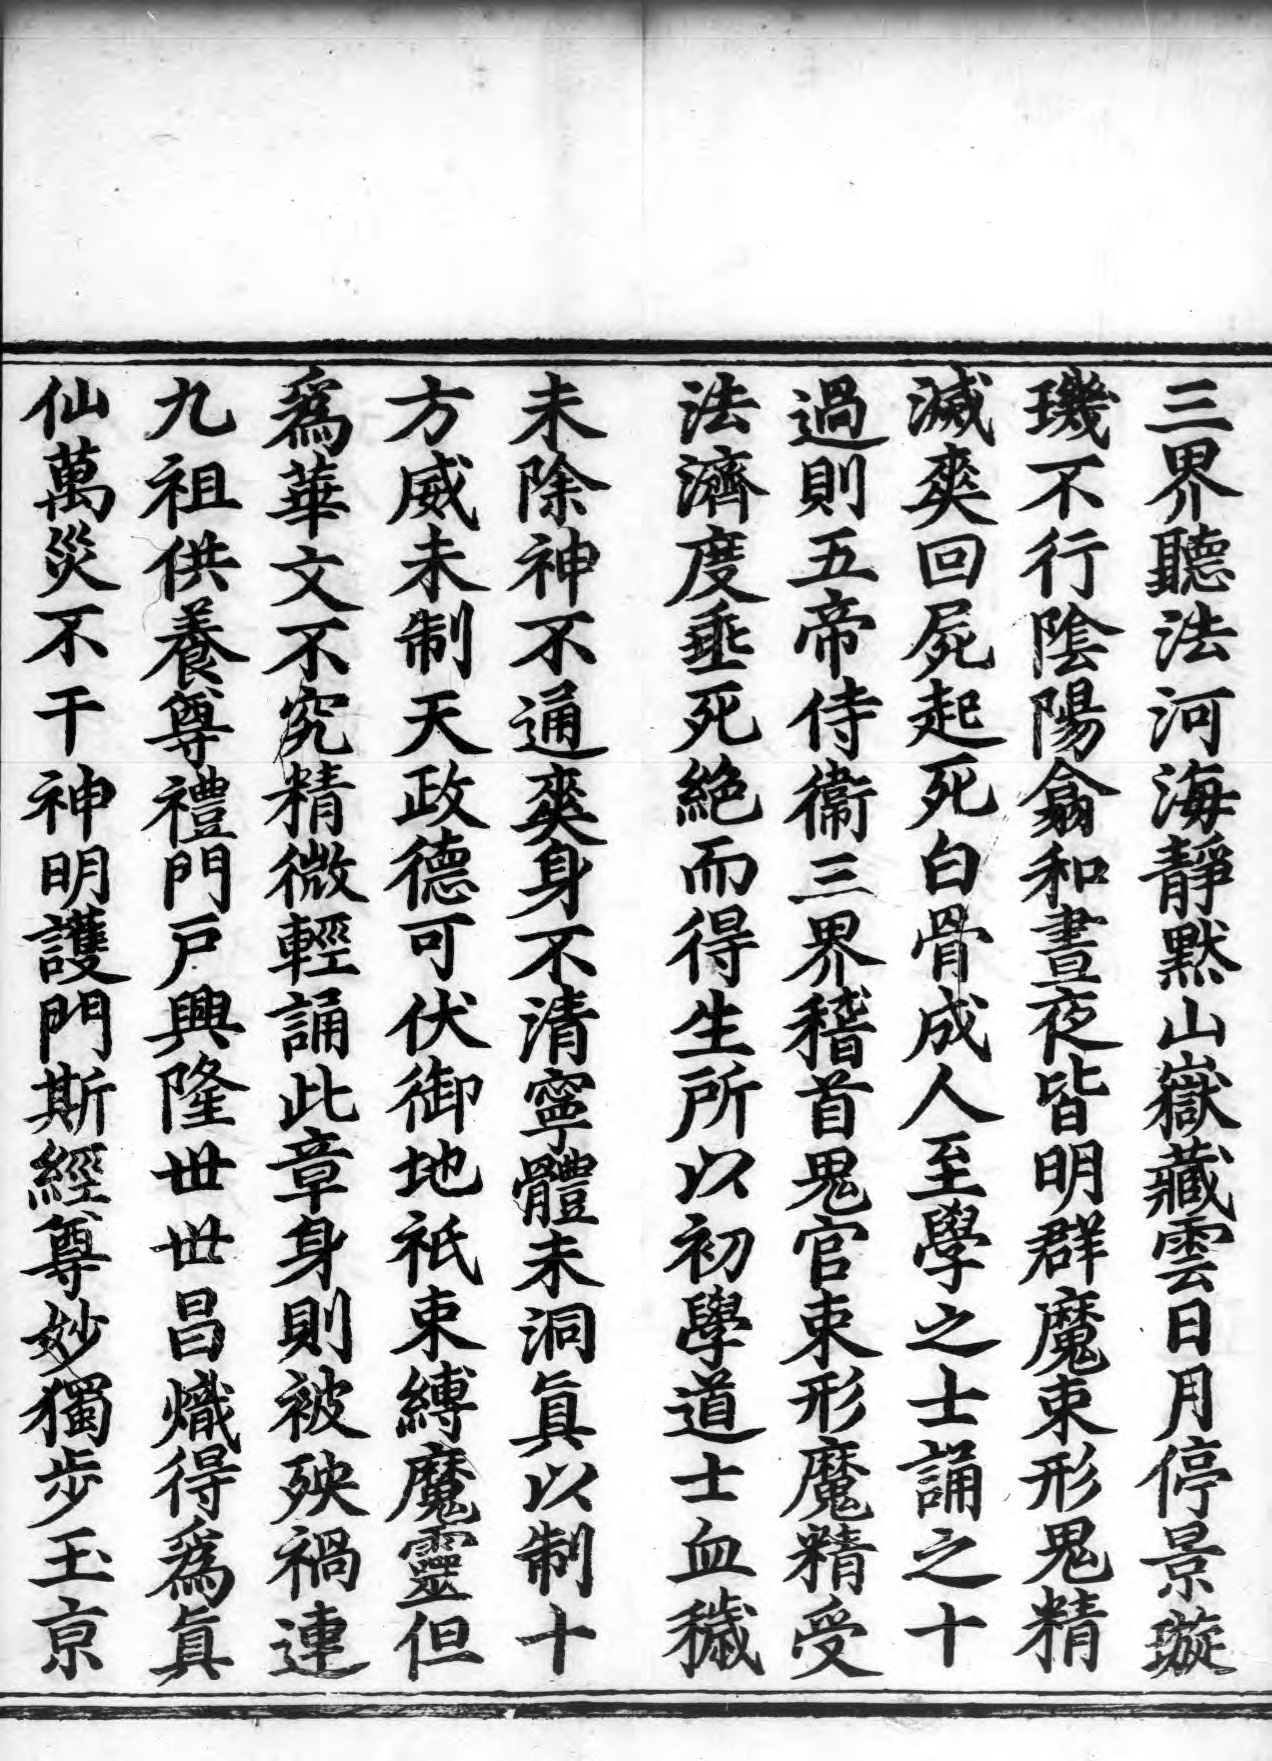 三界聽法河海靜默山嶽藏雲日月停景璇
璣不行陰陽翕和晝夜皆明群魔束形鬼精
滅爽回屍起死白骨成人至學之士誦之十
過則五帝侍衞三界稽首鬼官束形魔精受
法濟度垂死絕而得生所以初學道士血穢
未除神不通爽身不清寧體未洞真以制十
方威未制天政德可伏御地祇束縛魔靈但
爲華文不究精微輕誦此章身則被殃禍連
九祖供養尊禮門戶興隆世世昌熾得爲真
仙萬災不干神明護門斯經尊妙獨步玉京